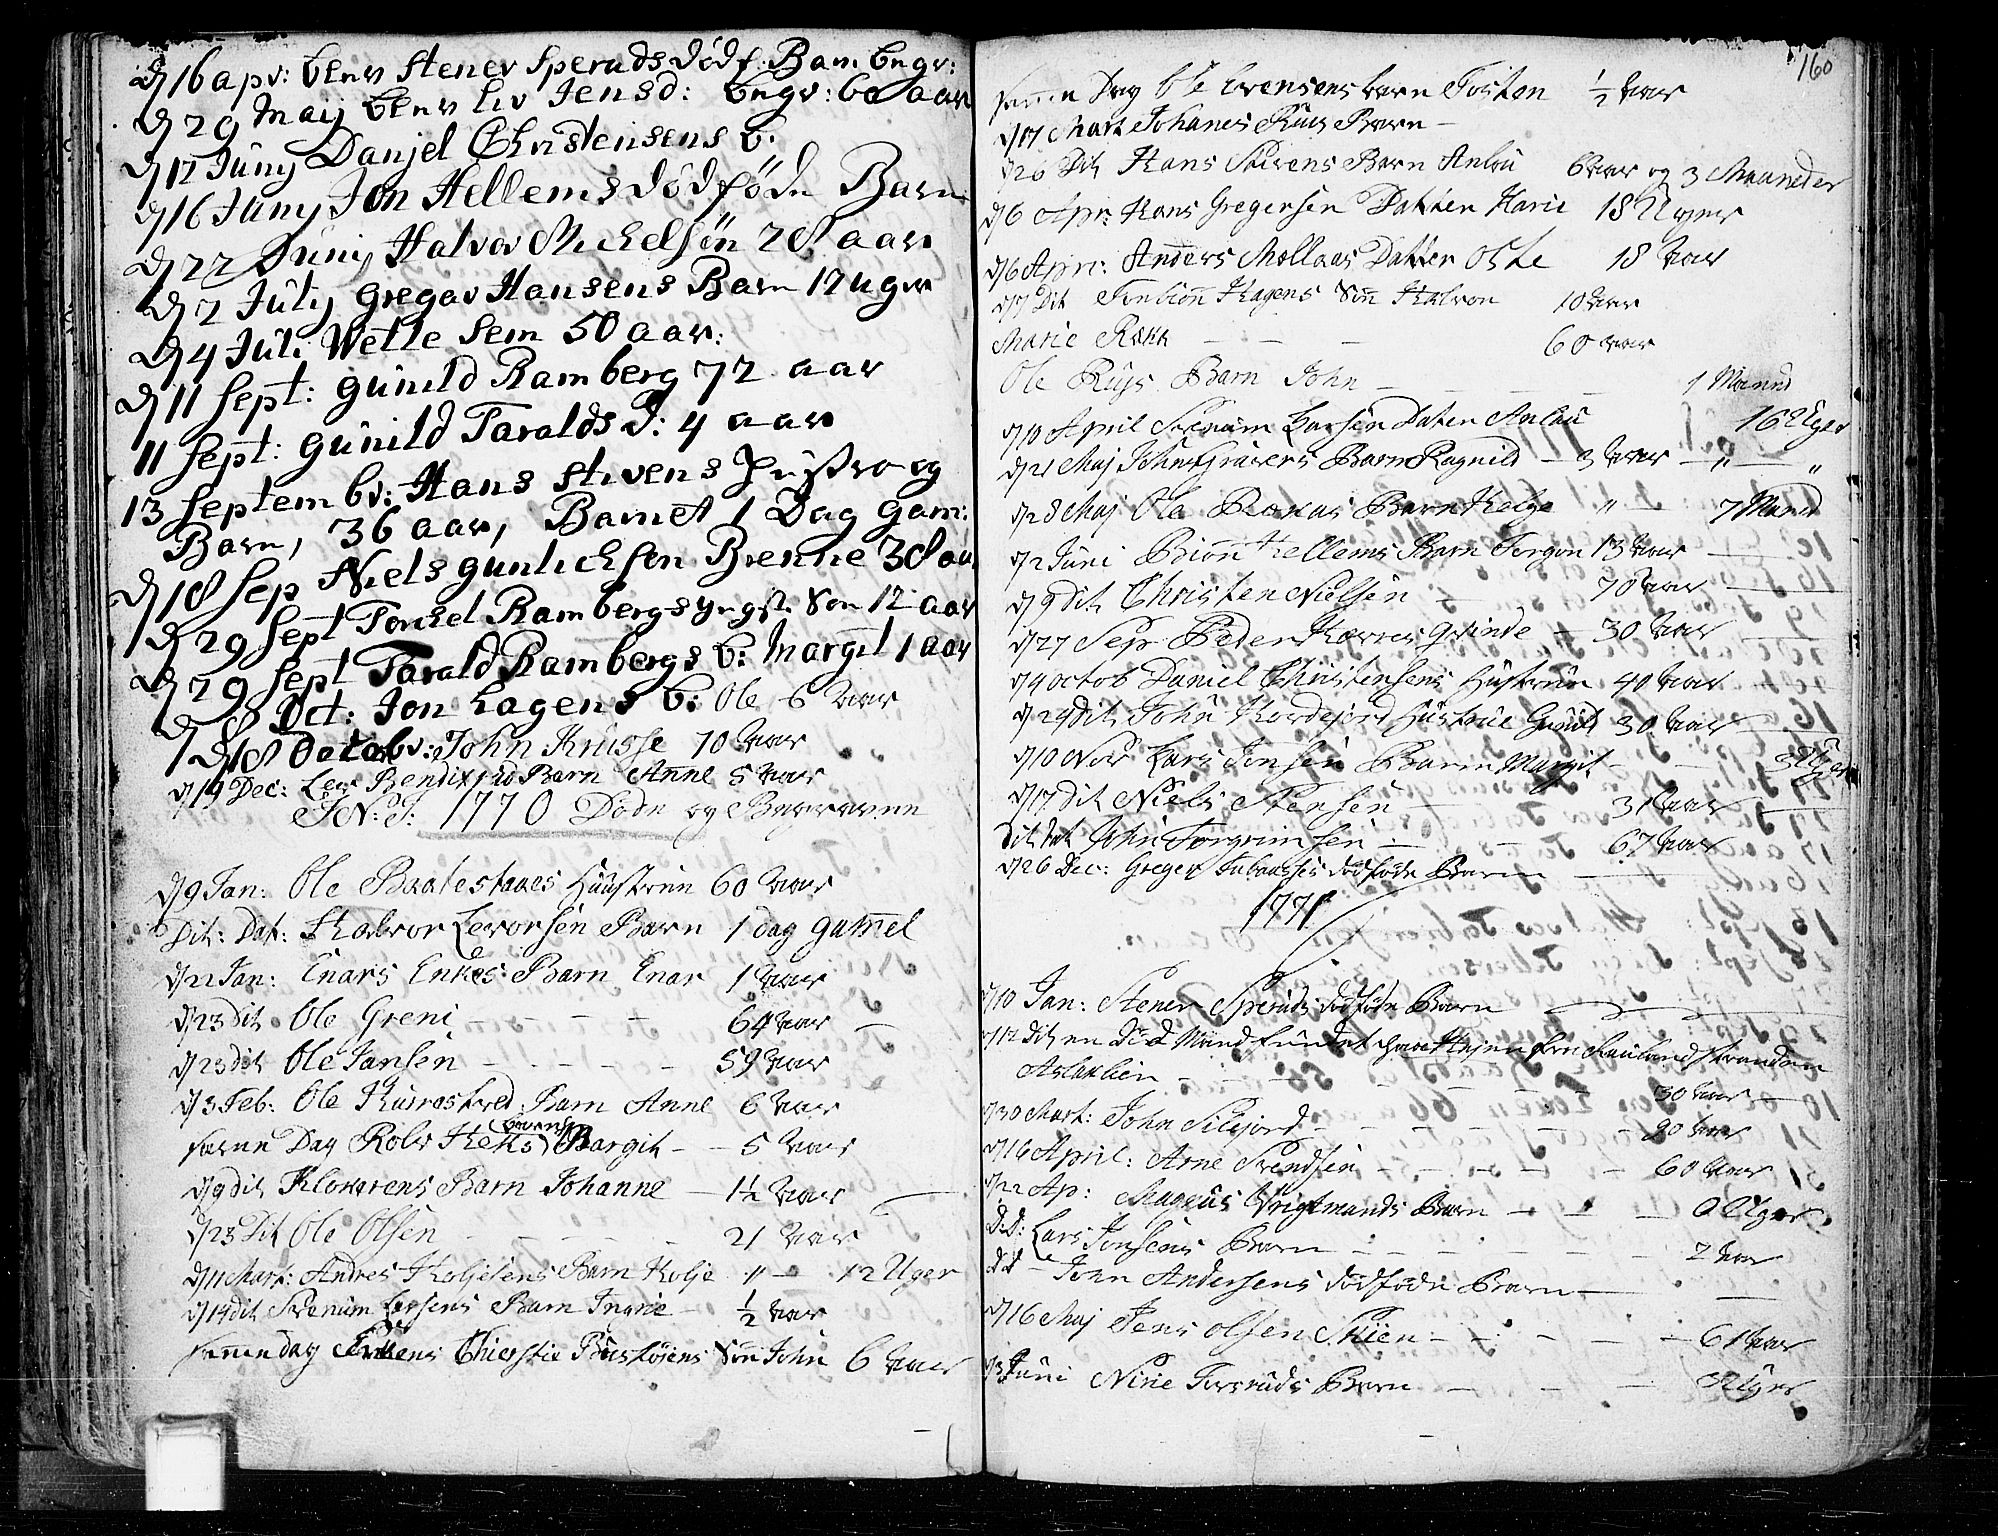 d/16 apr: blev Stener Sperudsdødf: Barn begr:
d/29 Maij blev Liv Jensd: begr: 60 aar
d/12 Junij Danjel Christensens b:
d/16 Junij Jon Hellems dødföde Barn
d/22 Junij Halvor Mickelsön 28 aar
d/2 July Gregar Hansens Barn 12 uger
d/4 Juli Wetle Sem 50 aar:
d/11 Sept: gunild Ramberg 72 aar
11 Sept: gunild Taraldsd: 4 aar
13 Septembr: Hans Stevens Hustro og
Barn, 36 aar, Barnet 1 Dag gam:
d/18 Sep Niels gunlichsen Brenne 38 aar
d/29 Sept Torkel Rambergs yngst Son 12 aar
d/29 Sept Tarald Rambergs b: Margit 1 aar
d/8 Oct: Jon Hagens b: Ole 6 aar
d/18 Octobr: John Krusse 70 aar
d/19 Dec: Lev Bendixrud Barn Anne 5 aar
J: N: J: 1770 Døde og Begravne
d/9 Jan: Ole Baatestaaes Huustrue 60 aar
Dit: Dat: Halvor Levorsen Barn 1 dag gam̄el
d/22 Jan: Enars Enkes Barn Enar 1 aar
d/23 dit Ole Greni - - - 64 aar
d/23 dit Ole Jansen - - - 59 aar
d/3 Feb: Ole Barn Anne 6 aar
sam̄e Dag Rolv Heksˢ Barn Margit - - 5 aar
d/9 dit Klowerens Barn Johanne - 1½ aar
d/23 Dit Ole Olsen - - - 21 aar
d/11 Mart: Andres Koljesens Barn Kolje " - 12 Uger
d/14 dit Svenum Lersens Barn Ingrie - ½ aar
sam̄e dag Chierstie Søn John 6 aar
160
sam̄e Dag Ole Evensens barn Tosten ½ aar
d/17 Mart Johanes Ruus Barn -
d/26 Dit Hans Stevens Barn Anlou 6 aar og 3 Maaneder
d/6 Apr: Hans Gregersen Datter Karie 18 Uger
d/6 Apr: Anders Mollaas Datter Oste 18 aar
d/7 Dit Hagens Søn Halvor 10 aar
Marie - - - 60 aar
Ole Ruys Barn John - - - 1 Maaned
d/10 April Svenum Larsen Daten Anlau 16 Uger
d/21 Maj John Gravers Barn Ragnild - 3 aar - " - "
d/28 Maj Ole Barn Helge " - 7 Maaned
d/2 Juni Biørn Hellems Barn Torgon 13 aar -
d/9 dit Christen Nielsen - 70 aar -
d/27 Sep Peder Kornes Grinde - 30 aar -
d/4 octob Daniel Christensens Hustrue 40 aar -
d/29 dit John Kordejord Hustrue Gunil 30 aar -
d/10 Nov Lars Jonsen Barn Margit - - 3 Uger
d/17 dit Niels Stensen - 31 aar -
dit dat John Torgrimsen - - 67 aar
d/26 Dec: Greger dødføde Barn -
1771
d/10 Jan: Stener Speruds dødføde Barn
d/12 dit en død Mand fundet
Aslakkien - - - - 30 aar -
d/30 Mart: John Silejord - - - 90 aar
d/16 April: Arne Svendsen - - - 60 aar
d/22 Ap: Magnus Wrigtmands Barn - - - 9 Uger
d:D: Lars Jonsens Barn - - - 2 aar
d:d - John Andersens dødføde Barn -
d/16 Maj Jens olsen Skien - - - 61 aar
d/3 Juni Nirie Barn - - - 3 Uger